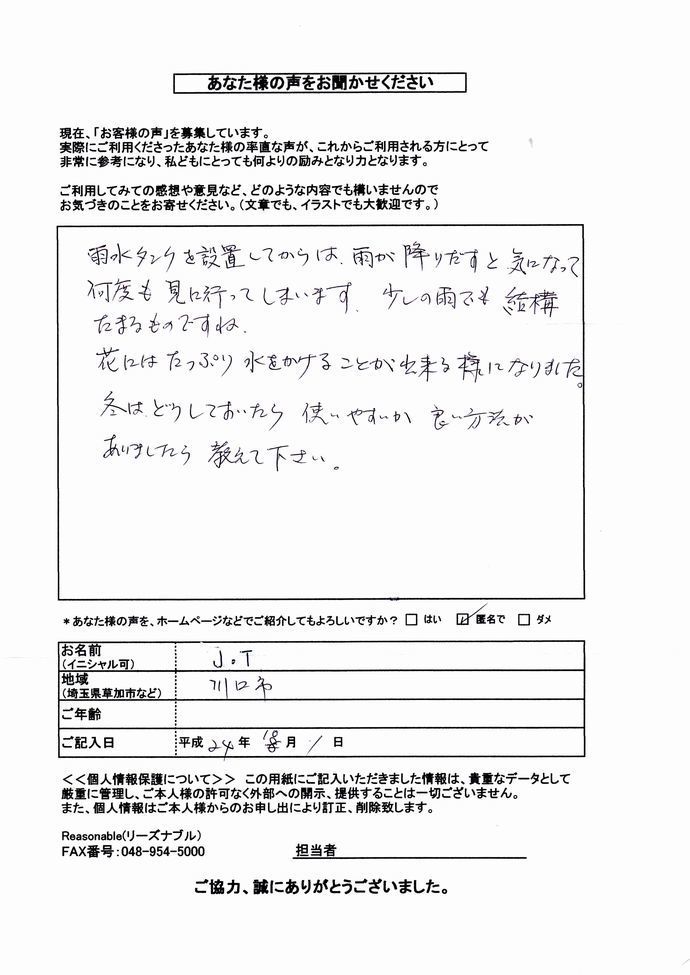 あなた様の声をお聞かせください
現在、「お客様の声」を募集しています。
実際にご利用くださったあなた様の率直な声が、これからご利用される方にとって
非常に参考になり、私どもにとっても何よりの励みとなり力となります。
ご利用してみての感想や意見など、どのような内容でも構いませんので
お気づきのことをお寄せください。（文章でも、イラストでも大歓迎です。）
雨水タンクを設置してからは、雨が降りだすと気になって
何度も見に行ってしまいます。少しの雨でも結構
たまるものですね。
花にはたっぷり水をかけることが出来る様になりました。
冬は、どうしておいたら使いやすいか良い方法が
ありましたら教えて下さい。
*あなた様の声を、ホームページなどでご紹介してもよろしいですか？ □ はい ☑ 匿名で □ ダメ
お名前
（イニシャル可） J.T
地域
（埼玉県草加市など） 川口市
ご年齢
ご記入日 平成 24 年 月 1 日
<<個人情報保護について>> この用紙にご記入いただきました情報は、貴重なデータとして
厳重に管理し、ご本人様の許可なく外部への開示、提供することは一切ございません。
また、個人情報はご本人様からのお申し出により訂正、削除致します。
Reasonable(リーズナブル)
FAX番号：048-954-5000 担当者
ご協力、誠にありがとうございました。